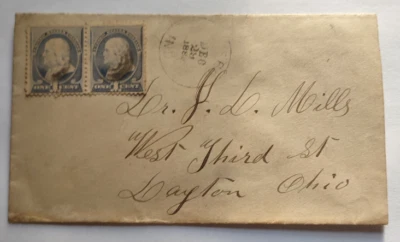 ONE CENT ONE CENT
DEC
Dr. J. L. Mills
West Third St
Dayton Ohio